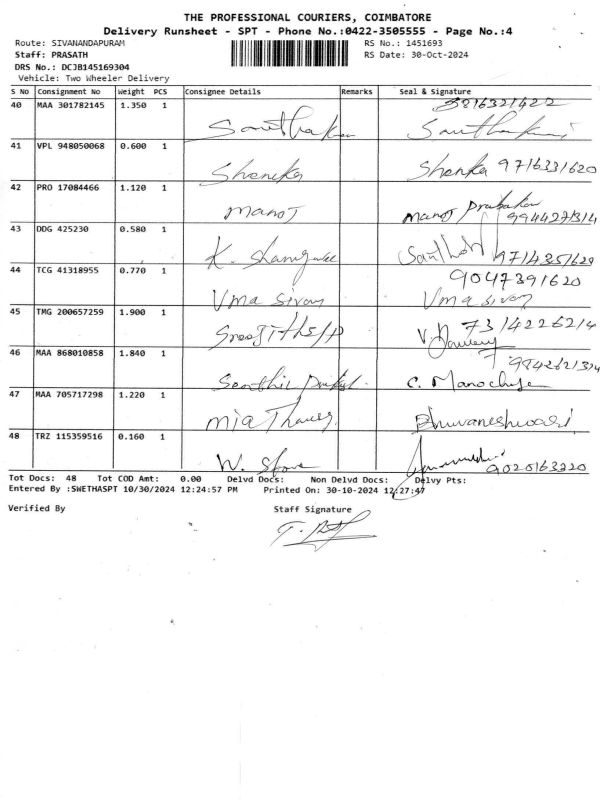 THE PROFESSIONAL COURIERS, COIMBATORE
Delivery Runsheet - SPT - Phone No.:0422-3505555 - Page No.:4
Route: SIVANANDAPURAM RS No.: 1451693
Staff: PRASATH RS Date: 30-Oct-2024
DRS No.: DCJB145169304
Vehicle: Two Wheeler Delivery
S No Consignment No Weight PCS Consignee Details Remarks Seal & Signature
40 MAA 301782145 1.350 1
41 VPL 948050068 0.600 1
Shenka Shenka 9716331620
42 PRO 17084466 1.120 1
Manoj Manoj Prabakar
43 DDG 425230 0.580 1
K. Santhosh
44 TCG 41318955 0.770 1 9047391620
Uma Sivan Uma Sivan
45 TMG 200657259 1.900 1 7314226214
46 MAA 868010858 1.840 1
Senthil C.
47 MAA 705717298 1.220 1
Mia Bhuvaneshwari
48 TRZ 115359516 0.160 1
W. 9020163220
Tot Docs: 48 Tot COD Amt: 0.00 Delvd Docs: Non Delvd Docs: Delvy Pts:
Entered By :SWETHASPT 10/30/2024 12:24:57 PM Printed On: 30-10-2024 12:27:47
Verified By Staff Signature